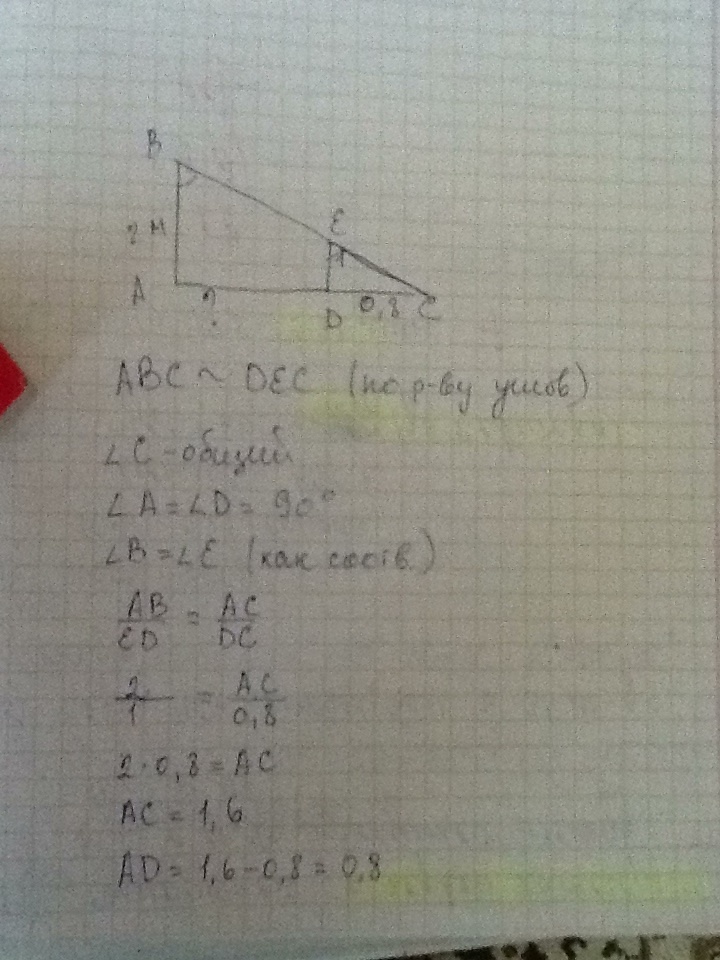 B
E
2 м
1
A
?
D
0,8
C
ABC ~ DEC (по р-ву углов)
∠C - общий
∠A = ∠D = 90°
∠B = ∠E (как соотв.)
AB/ED = AC/DC
2/1 = AC/0,8
2·0,8 = AC
AC = 1,6
AD = 1,6 - 0,8 = 0,8